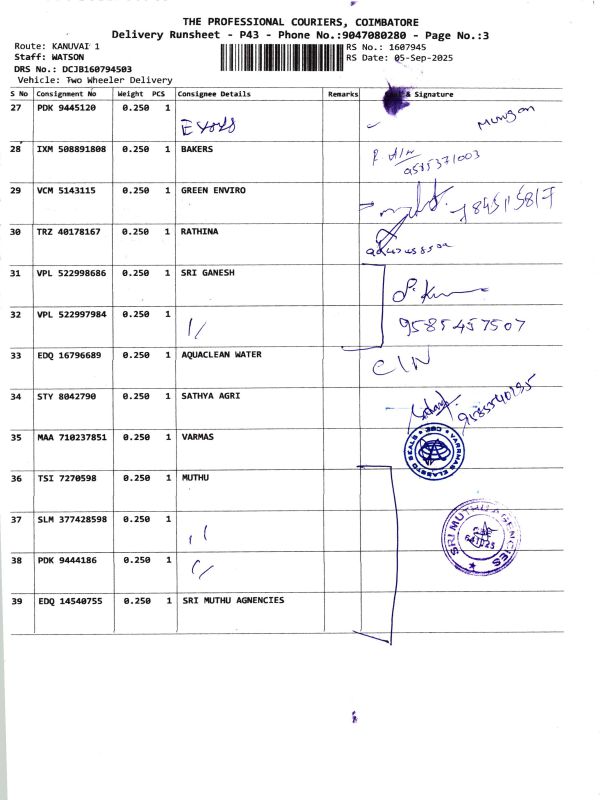 THE PROFESSIONAL COURIERS, COIMBATORE
Delivery Runsheet - P43 - Phone No.:9047080280 - Page No.:3
Route: KANUVAI 1 RS No.: 1607945
Staff: WATSON RS Date: 05-Sep-2025
DRS No.: DCJB160794503
Vehicle: Two Wheeler Delivery
S No Consignment No Weight PCS Consignee Details Remarks & Signature
27 PDK 9445120 0.250 1
28 IXM 508891808 0.250 1 BAKERS
9585371003
29 VCM 5143115 0.250 1 GREEN ENVIRO
30 TRZ 40178167 0.250 1 RATHINA
31 VPL 522998686 0.250 1 SRI GANESH
32 VPL 522997984 0.250 1 //
9585457507
33 EDQ 16796689 0.250 1 AQUACLEAN WATER
34 STY 8042790 0.250 1 SATHYA AGRI
35 MAA 710237851 0.250 1 VARMAS
36 TSI 7270598 0.250 1 MUTHU
37 SLM 377428598 0.250 1 //
SRI MUTHU AGENCIES
38 PDK 9444186 0.250 1 //
39 EDQ 14540755 0.250 1 SRI MUTHU AGNENCIES